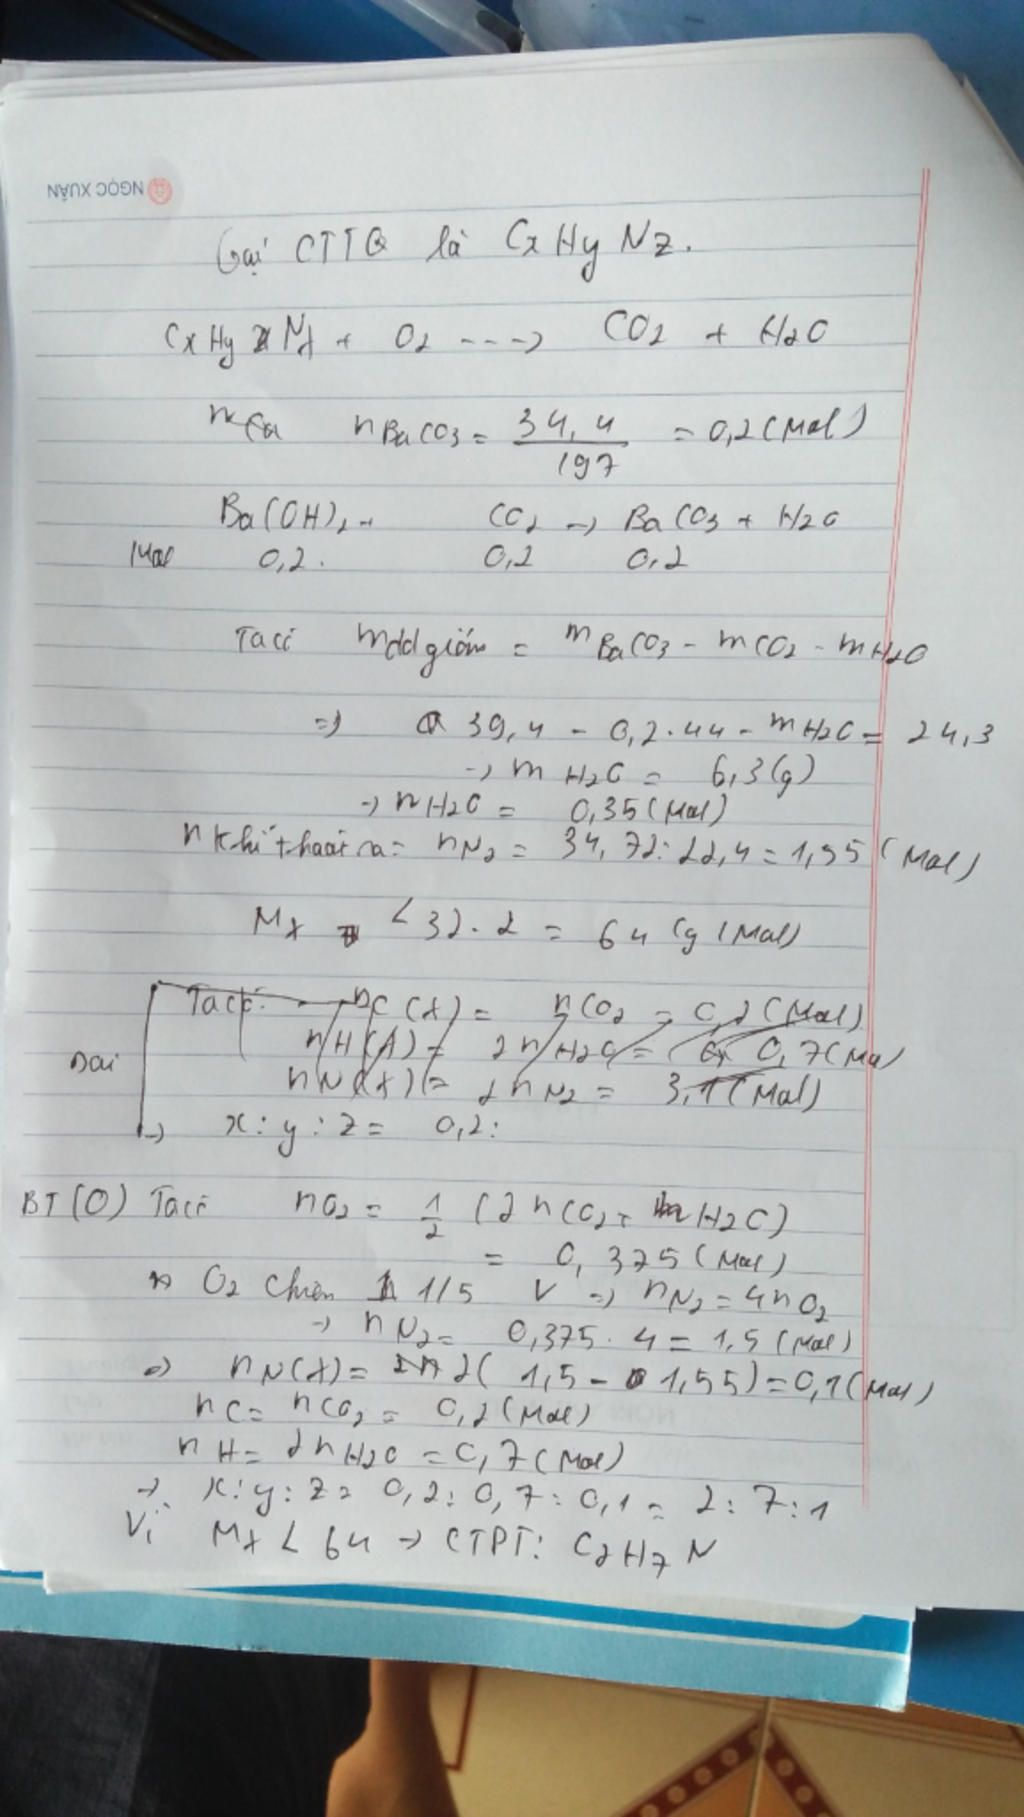 NGỌC XUÂN
Gọi CTTQ là CxHyNz.
CxHyNz + O2 ---> CO2 + H2O
nBaCO3 = 34,4 / 197 = 0,2 (Mol)
Ba(OH)2 + CO2 -> BaCO3 + H2O
Mol 0,2. 0,2 0,2
Ta có mdd giảm = mBaCO3 - mCO2 - mH2O
=> 39,4 - 0,2.44 - mH2O = 24,3
-> mH2O = 6,3(g)
-> nH2O = 0,35(Mol)
n khí thoát ra = nN2 = 34,72:22,4 = 1,55 (Mol)
MX < 32.2 = 64 (g/Mol)
Ta có: nC(X) = nCO2 = 0,2(Mol)
nH(A) = 2nH2O = 0,7(Mol)
nN(X) = 2nN2 = 3,1(Mol)
Sai
-> x:y:z = 0,2:
BT(O) Ta có nO2 = 1/2 (2nCO2 + nH2O)
= 0,375(Mol)
O2 chiếm 1/5 V => nN2 = 4nO2
-> nN2 = 0,375.4 = 1,5(Mol)
=> nN(X) = 2(1,5 - 1,55) = 0,1(Mol)
nC = nCO2 = 0,2(Mol)
nH = 2nH2O = 0,7(Mol)
-> x:y:z = 0,2:0,7:0,1 = 2:7:1
Vì MX < 64 -> CTPT: C2H7N